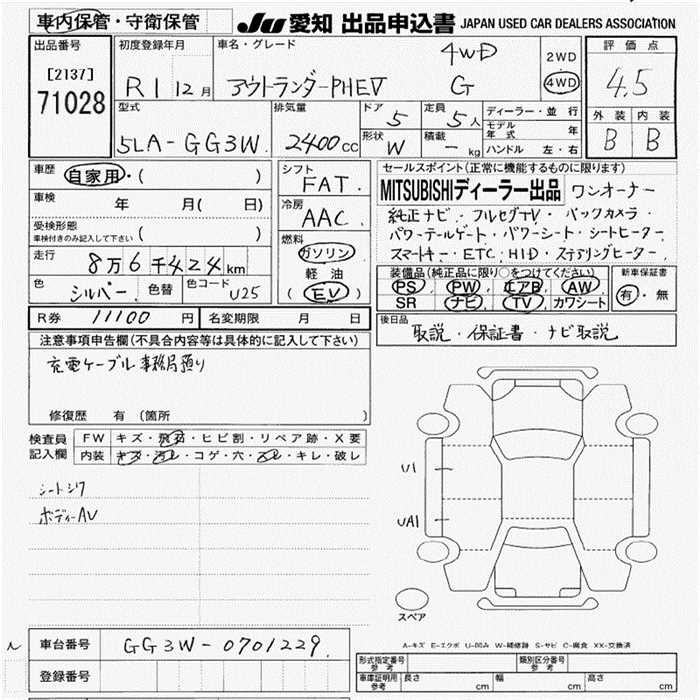 車内保管・守衛保管
JU 愛知 出品申込書 JAPAN USED CAR DEALERS ASSOCIATION
出品番号
[2137]
71028
初度登録年月
R1 12月
車名・グレード
4WD
アウトランダーPHEV G
2WD
4WD
評価点
4.5
外装 内装
B B
型式
5LA-GG3W
排気量
2400cc
ドア 5
定員 5人
形状 W
積載 - kg
ディーラー・並行
モデル年式 年
ハンドル 左・右
車歴 自家用・( )
車検 年 月( 日)
受検形態
車検付きのみ記入して下さい ( )
走行 8万6千424km
色 シルバー 色替 色コード U25
シフト
FAT
冷房
AAC
燃料
ガソリン
軽油
(EV)
セールスポイント(正常に機能するものに限ります)
MITSUBISHIディーラー出品 ワンオーナー
純正ナビ・フルセグTV・バックカメラ・
パワーテールゲート・パワーシート・シートヒーター
スマートキー・ETC・HID・ステアリングヒーター
装備品(純正品に限り○をつけてください)
PS PW エアB AW
SR ナビ TV カワシート
新車保証書
有・無
後日品
取説・保証書・ナビ取説
R券 11100 円 名変期限 月 日
注意事項申告欄(不具合内容等は具体的に記入して下さい)
充電ケーブル事務局預り
修復歴 有(箇所 )
検査員記入欄
FW キズ・飛石・ヒビ割・リペア跡・X要
内装 キズ・汚レ・コゲ・穴・スレ・キレ・破レ
シートシワ
ボディーAV
U1
UA1
スペア
車台番号 GG3W-0701229
登録番号
A-キズ E-エクボ U-凹み W-補修跡 S-サビ C-腐食 XX-交換済
形式指定番号 参考
類別区分番号 参考
車庫証明用 参考 長さ cm 幅 cm 高さ cm